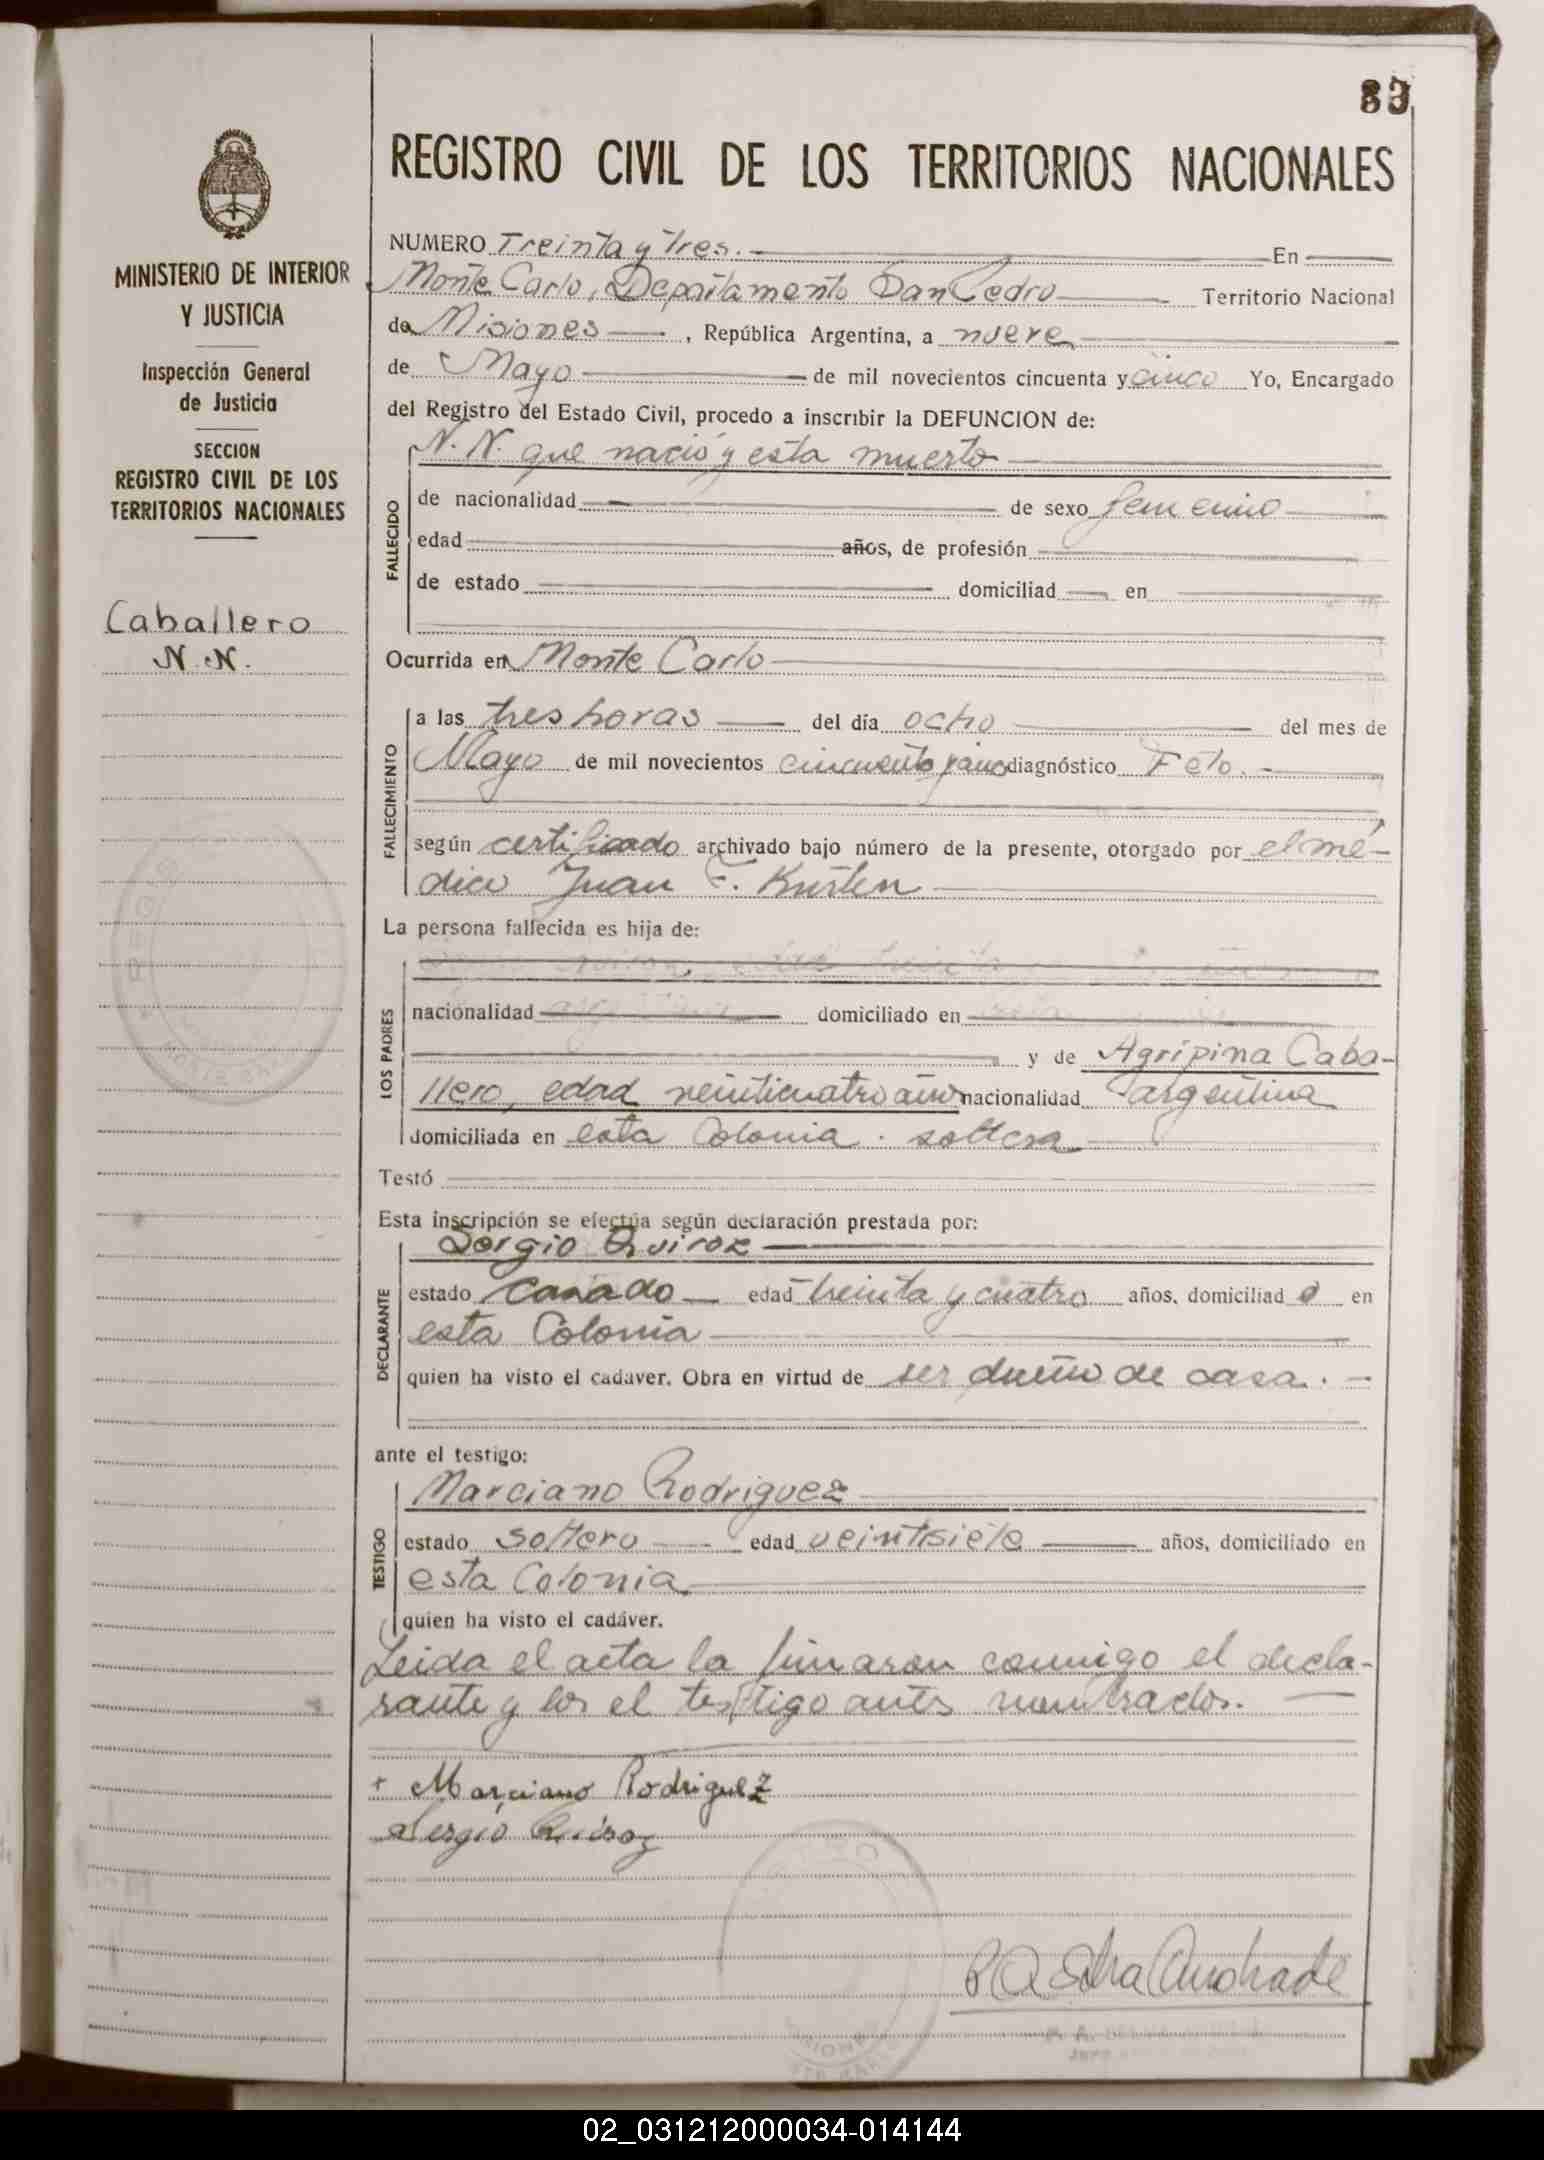 83
REGISTRO CIVIL DE LOS TERRITORIOS NACIONALES
MINISTERIO DE INTERIOR
Y JUSTICIA
Inspección General
de Justicia
SECCION
REGISTRO CIVIL DE LOS
TERRITORIOS NACIONALES
Caballero
N. N.
NUMERO Treinta y tres. En
Monte Carlo, Departamento San Pedro Territorio Nacional
de Misiones, República Argentina, a nueve
de Mayo de mil novecientos cincuenta y cinco Yo, Encargado
del Registro del Estado Civil, procedo a inscribir la DEFUNCION de:
FALLECIDO
N. N. que nació y esta muerto
de nacionalidad de sexo femenino
edad años, de profesión
de estado domiciliad en
Ocurrida en Monte Carlo
FALLECIMIENTO
a las tres horas del día ocho del mes de
Mayo de mil novecientos cincuenta y cinco diagnóstico Feto.
según certificado archivado bajo número de la presente, otorgado por el mé-
dico Juan F. Kusten
La persona fallecida es hija de:
LOS PADRES
nacionalidad domiciliado en
y de Agripina Caba-
llero, edad veinticuatro años nacionalidad argentina
domiciliada en esta Colonia. soltera
Testó
Esta inscripción se efectúa según declaración prestada por:
DECLARANTE
Sergio Quiroz
estado casado edad treinta y cuatro años, domiciliad o en
esta Colonia
quien ha visto el cadáver. Obra en virtud de ser dueño de casa.
ante el testigo:
TESTIGO
Marciano Rodriguez
estado soltero edad veintisiete años, domiciliado en
esta Colonia
quien ha visto el cadáver.
Leida el acta la firmaron conmigo el decla-
rante y los el testigo antes nombrados.
+ Marciano Rodriguez
Sergio Quiroz
Andrade
02_031212000034-014144